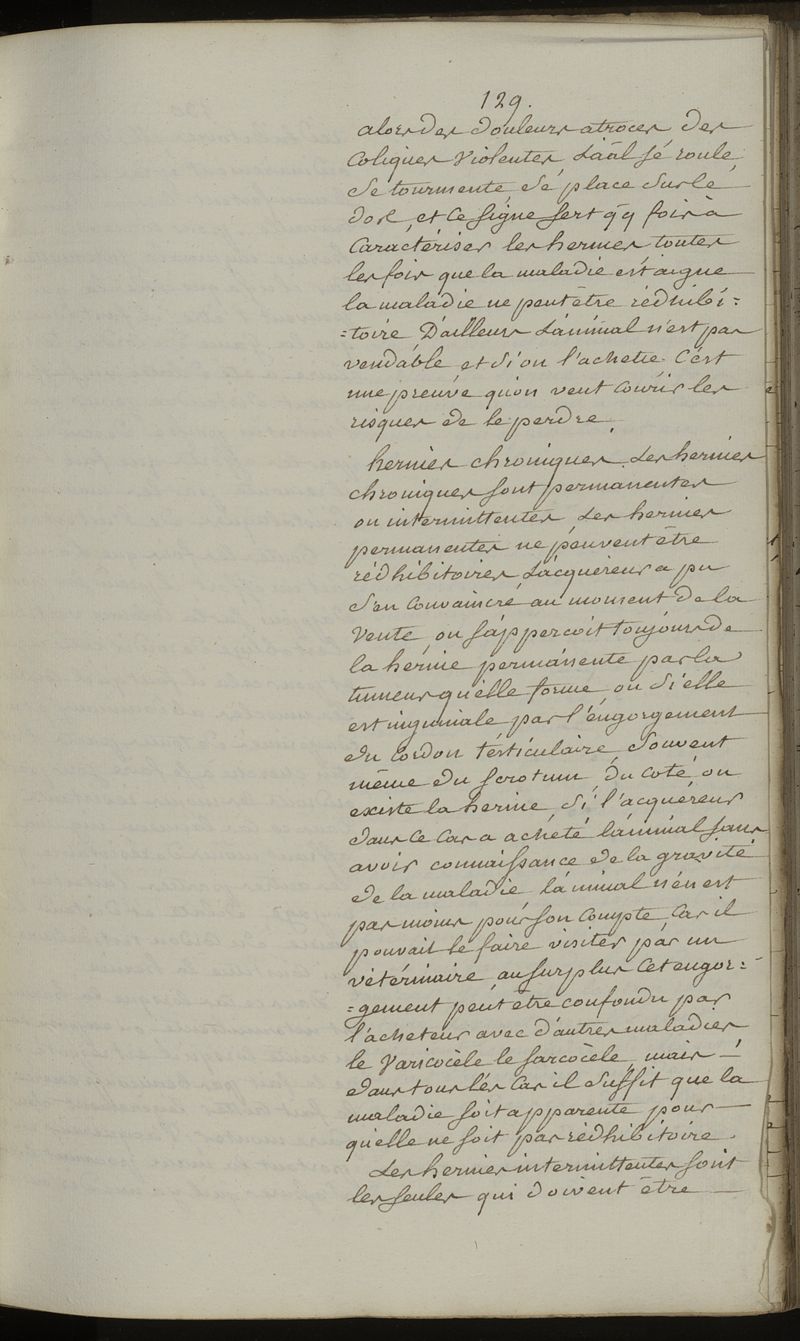 129.
alors des douleurs atroces des
coliques violentes, L'aâl sé roule
se tourmenté, sé place sur lé
dos, et ce signe sert qq fois à
caractériser les hernies toutes
les fois que la maladie est aigue
la maladie ne peut être rédhibi=
=toire. D'ailleurs L'animal n'est pas
vendable et si on l'achette. C'ést
une preuve qu'on veut courir les
risques de le perdre.
hernies chroniques. Les hernies
chroniques sont permanentes
ou intermittentes, Les hernies
permanentes ne peuvent être
rédhibitoires, L'acquereur a pu
s'en convaincré au moment de la
vente, on s'apperçoit toujours de
la hernie permanente par la
tumeur qu'elle forme, ou si elle
est inguinale par l'éngorgement
du cordon testiculaire, souvent
même du scrotum, du coté, ou
existe la hernie, si l'acquéreur
dans ce cas a achété l'animal sans
avoir connaissance de la gravité
de la maladie l'animal n'én est
pas moins pour son compte, car il
pouvait le faire visiter par un
vétérinaire, au surplus cet engor=
=gement peut être confondu par
l'acheteur avec d'autres maladies
le varicocèle le sarcocèle, mais —
dans tous lés cas il suffit que la
maladie soit apparente pour —
qu'elle ne soit pas rédhibitoire.
Les hernies intermittentes sont
les seules qui doivent être —